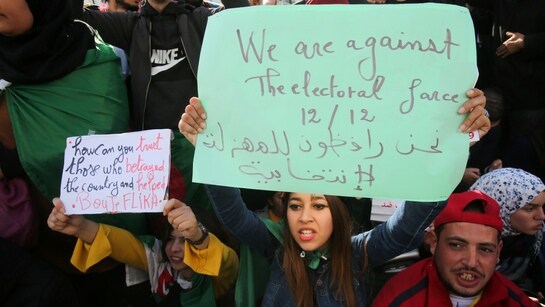 NIKE
We are against
The electoral farce
12/12
نحن رافضون للمهزلة
الإنتخابية
how can you trust
those who betrayed
the country and helped
BOUTEFLIKA